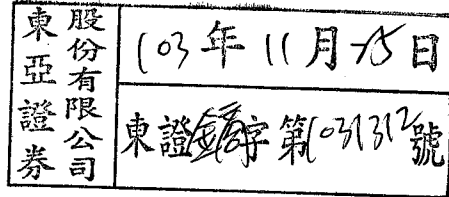 東亞證券
股份有限公司
103年11月25日
東證字第1031312號